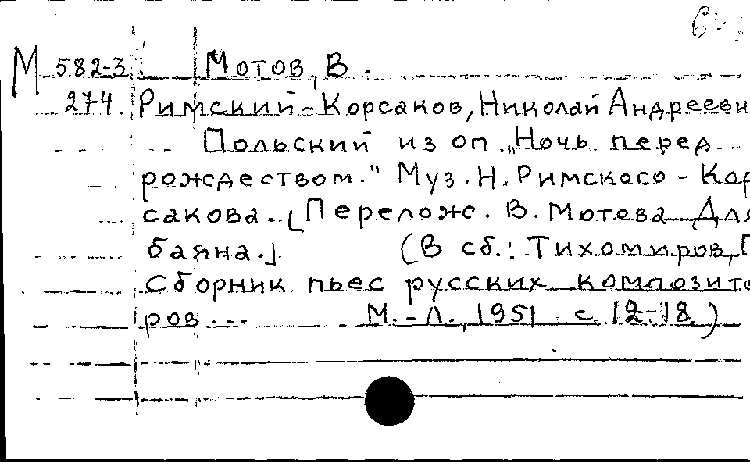 М 582-3 Мотов, В.
274. Римский-Корсаков, Николай Андрееви
Польский из оп. „Ночь перед
рождеством." Муз. Н. Римского-Кор
сакова. [Перелож. В. Мотова Для
баяна.] (В сб.: Тихомиров, Г
Сборник пьес русских композито
ров... М.-Л., 1951 с 12-18)